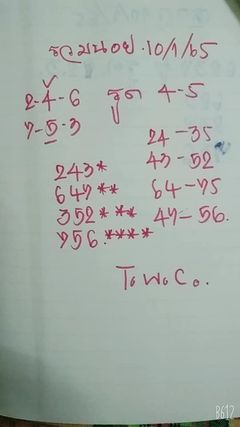 ฮานอย.10/1/65
2-4-6 รูด 4-5
7-5-3
24-35
43-52
243*
647** 64-75
352*** 47-56.
756.****
T.W.C.
B612